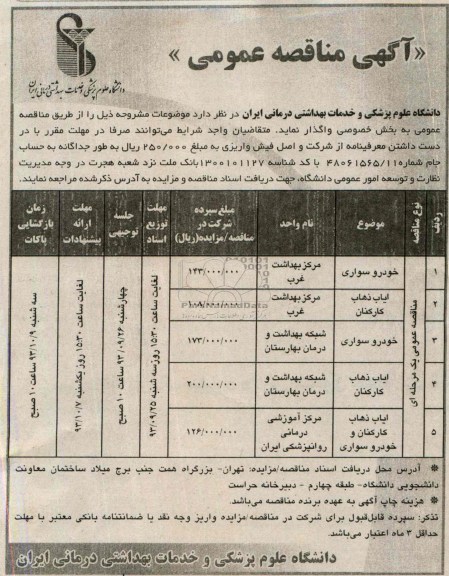 دانشگاه علوم پزشکی و خدمات بهداشتی درمانی ایران
«آگهی مناقصه عمومی»
دانشگاه علوم پزشکی و خدمات بهداشتی درمانی ایران در نظر دارد موضوعات مشروحه ذیل را از طریق مناقصه
عمومی به بخش خصوصی واگذار نماید. متقاضیان واجد شرایط می‌توانند صرفا در مهلت مقرر با در
دست داشتن معرفینامه از شرکت و اصل فیش واریزی به مبلغ ۲۵۰/۰۰۰ ریال به طور جداگانه به حساب
جام شماره ۴۸۰۶۱۵۶۵/۱۱ با کد شناسه ۱۳۰۰۱۰۱۱۲۷ بانک ملت نزد شعبه هجرت در وجه مدیریت
نظارت و توسعه امور عمومی دانشگاه، جهت دریافت اسناد مناقصه و مزایده به آدرس ذکرشده مراجعه نمایند.
ردیف نوع مناقصه موضوع نام واحد مبلغ سپرده شرکت در مناقصه/مزایده(ریال) مهلت توزیع اسناد جلسه توجیهی مهلت ارائه پیشنهادات زمان بازگشایی پاکات
۱ خودرو سواری مرکز بهداشت غرب ۱۴۳/۰۰۰/۰۰۰
۲ ایاب ذهاب کارکنان مرکز بهداشت غرب
۳ خودرو سواری شبکه بهداشت و درمان بهارستان ۱۷۳/۰۰۰/۰۰۰
۴ ایاب ذهاب کارکنان شبکه بهداشت و درمان بهارستان ۲۰۰/۰۰۰/۰۰۰
۵ ایاب ذهاب کارکنان و خودرو سواری مرکز آموزشی درمانی روانپزشکی ایران ۱۲۶/۰۰۰/۰۰۰
مناقصه عمومی یک مرحله ای
لغایت ساعت ۱۵:۳۰ روز سه شنبه ۹۳/۰۹/۲۵
چهارشنبه ۹۳/۰۹/۲۶ ساعت ۱۰ صبح
لغایت ساعت ۱۵:۳۰ روز یکشنبه ۹۳/۱۰/۷
سه شنبه ۹۳/۱۰/۹ ساعت ۱۰ صبح
* آدرس محل دریافت اسناد مناقصه/مزایده: تهران- بزرگراه همت جنب برج میلاد ساختمان معاونت
دانشجویی دانشگاه- طبقه چهارم - دبیرخانه حراست
* هزینه چاپ آگهی به عهده برنده مناقصه می‌باشد.
تذکر: سپرده قابل‌قبول برای شرکت در مناقصه/مزایده واریز وجه نقد یا ضمانتنامه بانکی معتبر با مهلت
حداقل ۳ ماه اعتبار می‌باشد.
دانشگاه علوم پزشکی و خدمات بهداشتی درمانی ایران